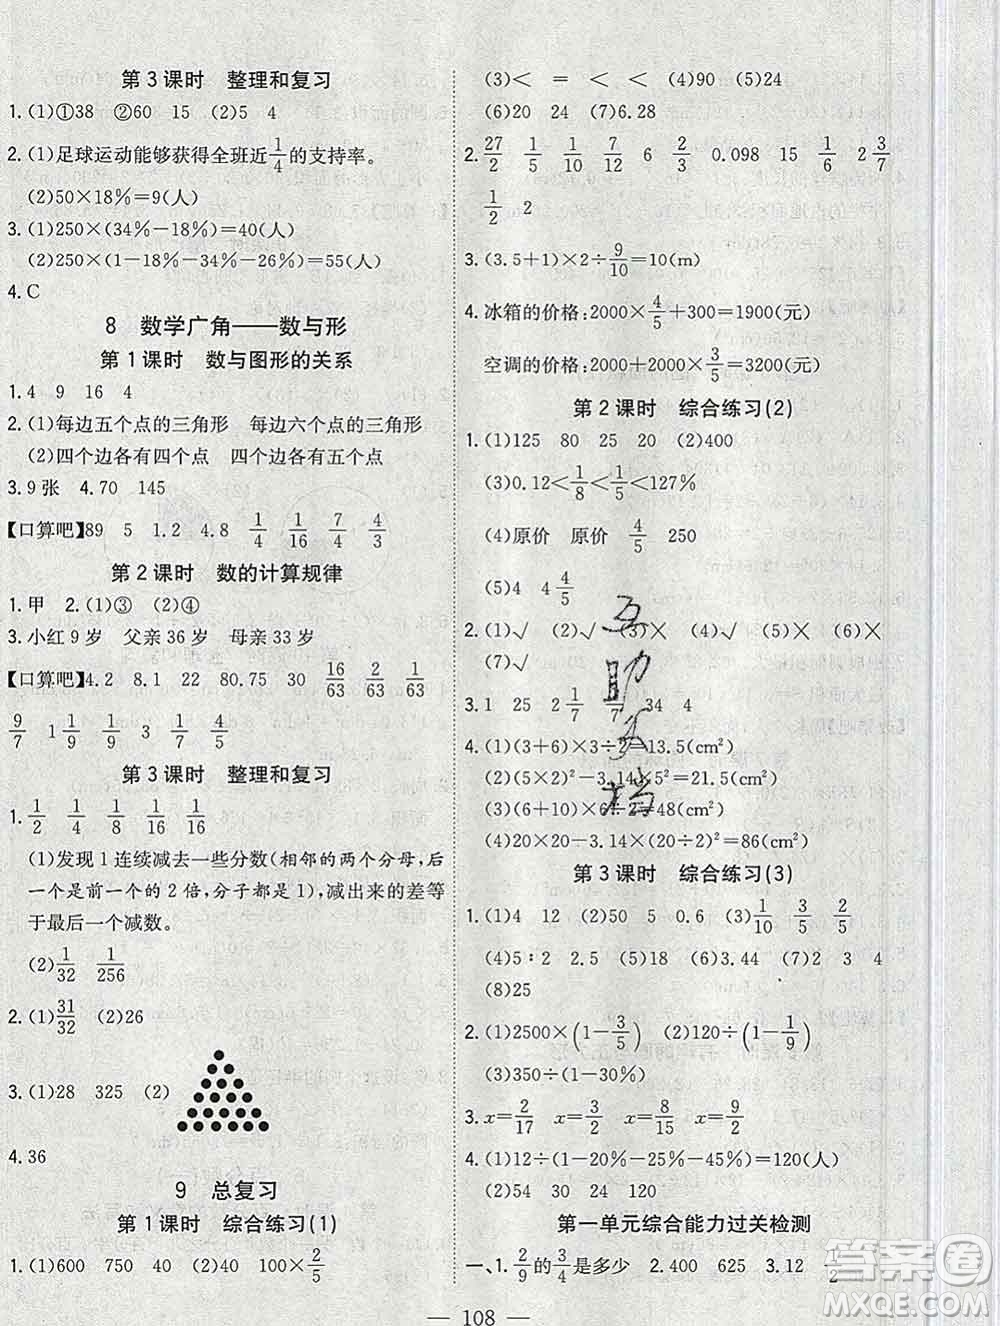 第3课时 整理和复习
1.(1)①38 ②60 15 (2)5 4
2.(1)足球运动能够获得全班近1/4的支持率。
(2)50×18%=9(人)
3.(1)250×(34%-18%)=40(人)
(2)250×(1-18%-34%-26%)=55(人)
4.C
8 数学广角——数与形
第1课时 数与图形的关系
1.4 9 16 4
2.(1)每边五个点的三角形 每边六个点的三角形
(2)四个边各有四个点 四个边各有五个点
3.9张 4.70 145
【口算吧】89 5 1.2 4.8 1/4 1/16 7/4 3/16
第2课时 数的计算规律
1.甲 2.(1)③ (2)④
3.小红9岁 父亲36岁 母亲33岁
【口算吧】4.2 8.1 22 80.75 30 16/63 2/63 1/63
9/7 1/9 1/9 3
第3课时 整理和复习
1.1/2 1/4 1/8 1/16 1/16
(1)发现1连续减去一些分数(相邻的两个分母,后
一个是前一个的2倍,分子都是1),减出来的差等
于最后一个减数。
(2)1/32 1/256
2.(1)31/32 (2)26
3.(1)28 325 (2)
4.36
9 总复习
第1课时 综合练习(1)
1.(1)600 750 40 (2)100×2/5
(3)< = < < (4)90 (5)24
(6)20 24 (7)6.28
2.27/2 1/5 1/10 7/12 6 2/3 0.098 15 1/6 2 3/7
1/2 2
3.(3.5+1)×2÷9/10=10(m)
4.冰箱的价格:2000×4/5+300=1900(元)
空调的价格:2000+2000×3/5=3200(元)
第2课时 综合练习(2)
1.(1)125 80 25 20 (2)400
(3)0.12<1/8<1/5<127%
(4)原价 原价 4/5 250
(5)4 4 4/5
2.(1)√ (2)√ (3)× (4)√ (5)√ (6)×
(7)√
3.1 25 2 1/7 1/7 34 4
4.(1)(3+6)×3÷2=13.5(cm²)
(2)(5×2)²-3.14×5²=21.5(cm²)
(3)(6+10)×6÷2=48(cm²)
(4)20×20-3.14×(20÷2)²=86(cm²)
第3课时 综合练习(3)
1.(1)4 12 (2)50 5 0.6 (3)1/10 3/5 2/5
(4)5∶2 2.5 (5)18 (6)3.44 (7)2 3 4
(8)25
2.(1)2500×(1-3/5) (2)120÷(1-1/9)
(3)350÷(1-30%)
3.x=2/17 x=8/15 x=9/8
4.(1)12÷(1-20%-25%-45%)=120(人)
(2)54 30 24 120
第一单元综合能力过关检测
一、1.2/9的3/4是多少 2.400 625 3.12 1/2
108
互
助
文
档
答案圈
MXQE.COM